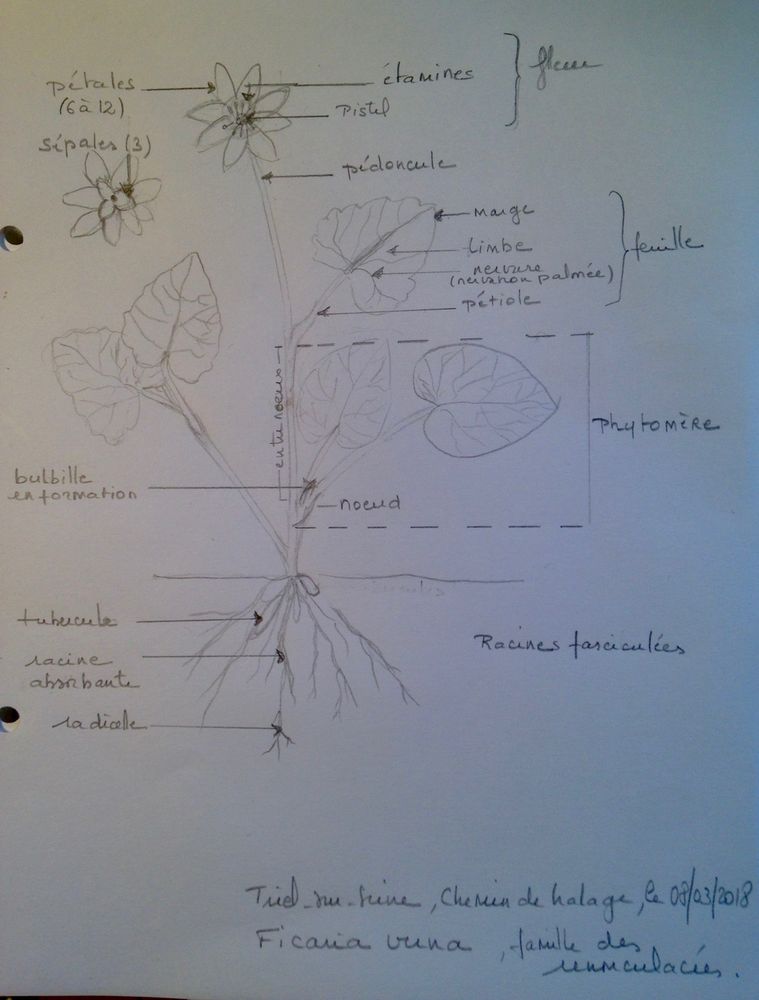 étamines
fleur
pétales
(6 à 12)
Pistil
sépales (3)
pédoncule
marge
limbe
feuille
nervure
(nervation palmée)
pétiole
entrenoeuds
Phytomère
bulbille
en formation
noeud
tubercule
racine
absorbante
Racines fasciculées
radicelle
Triel-sur-Seine, Chemin de halage, le 08/03/2018
Ficaria verna, famille des
renonculacées.